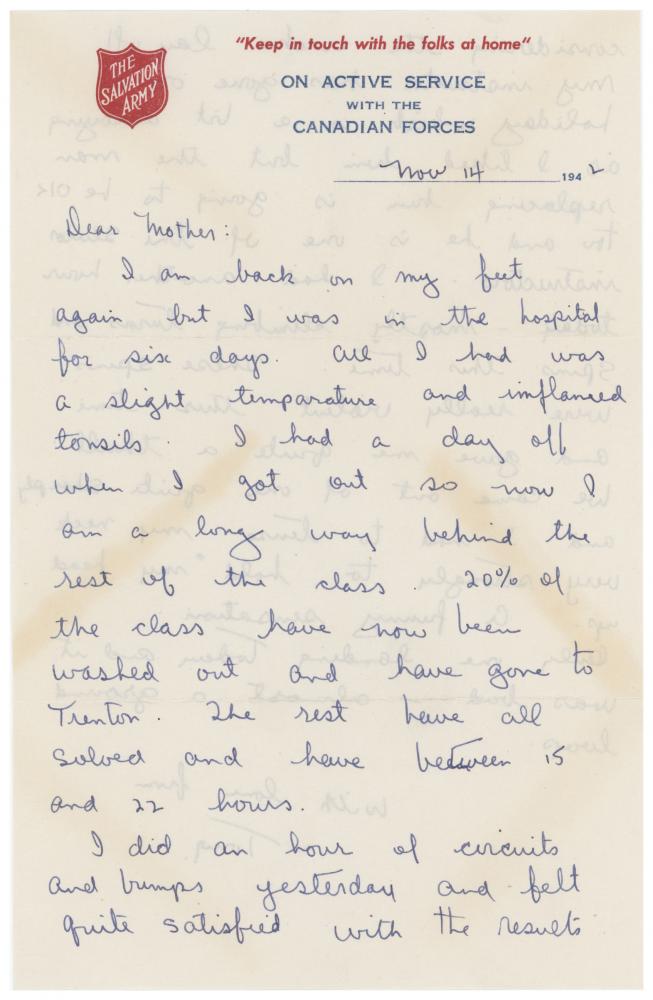 THE
SALVATION
ARMY
"Keep in touch with the folks at home"
ON ACTIVE SERVICE
WITH THE
CANADIAN FORCES
Nov 14 1942
Dear Mother:
I am back on my feet
again but I was in the hospital
for six days. All I had was
a slight temparature and imflamed
tonsils. I had a day off
when I got out so now I
am a long way behind the
rest of the class. 20% of
the class have now been
washed out and have gone to
Trenton. The rest have all
soloed and have between 15
and 22 hours.
I did an hour of circuits
and bumps yesterday and felt
quite satisfied with the results